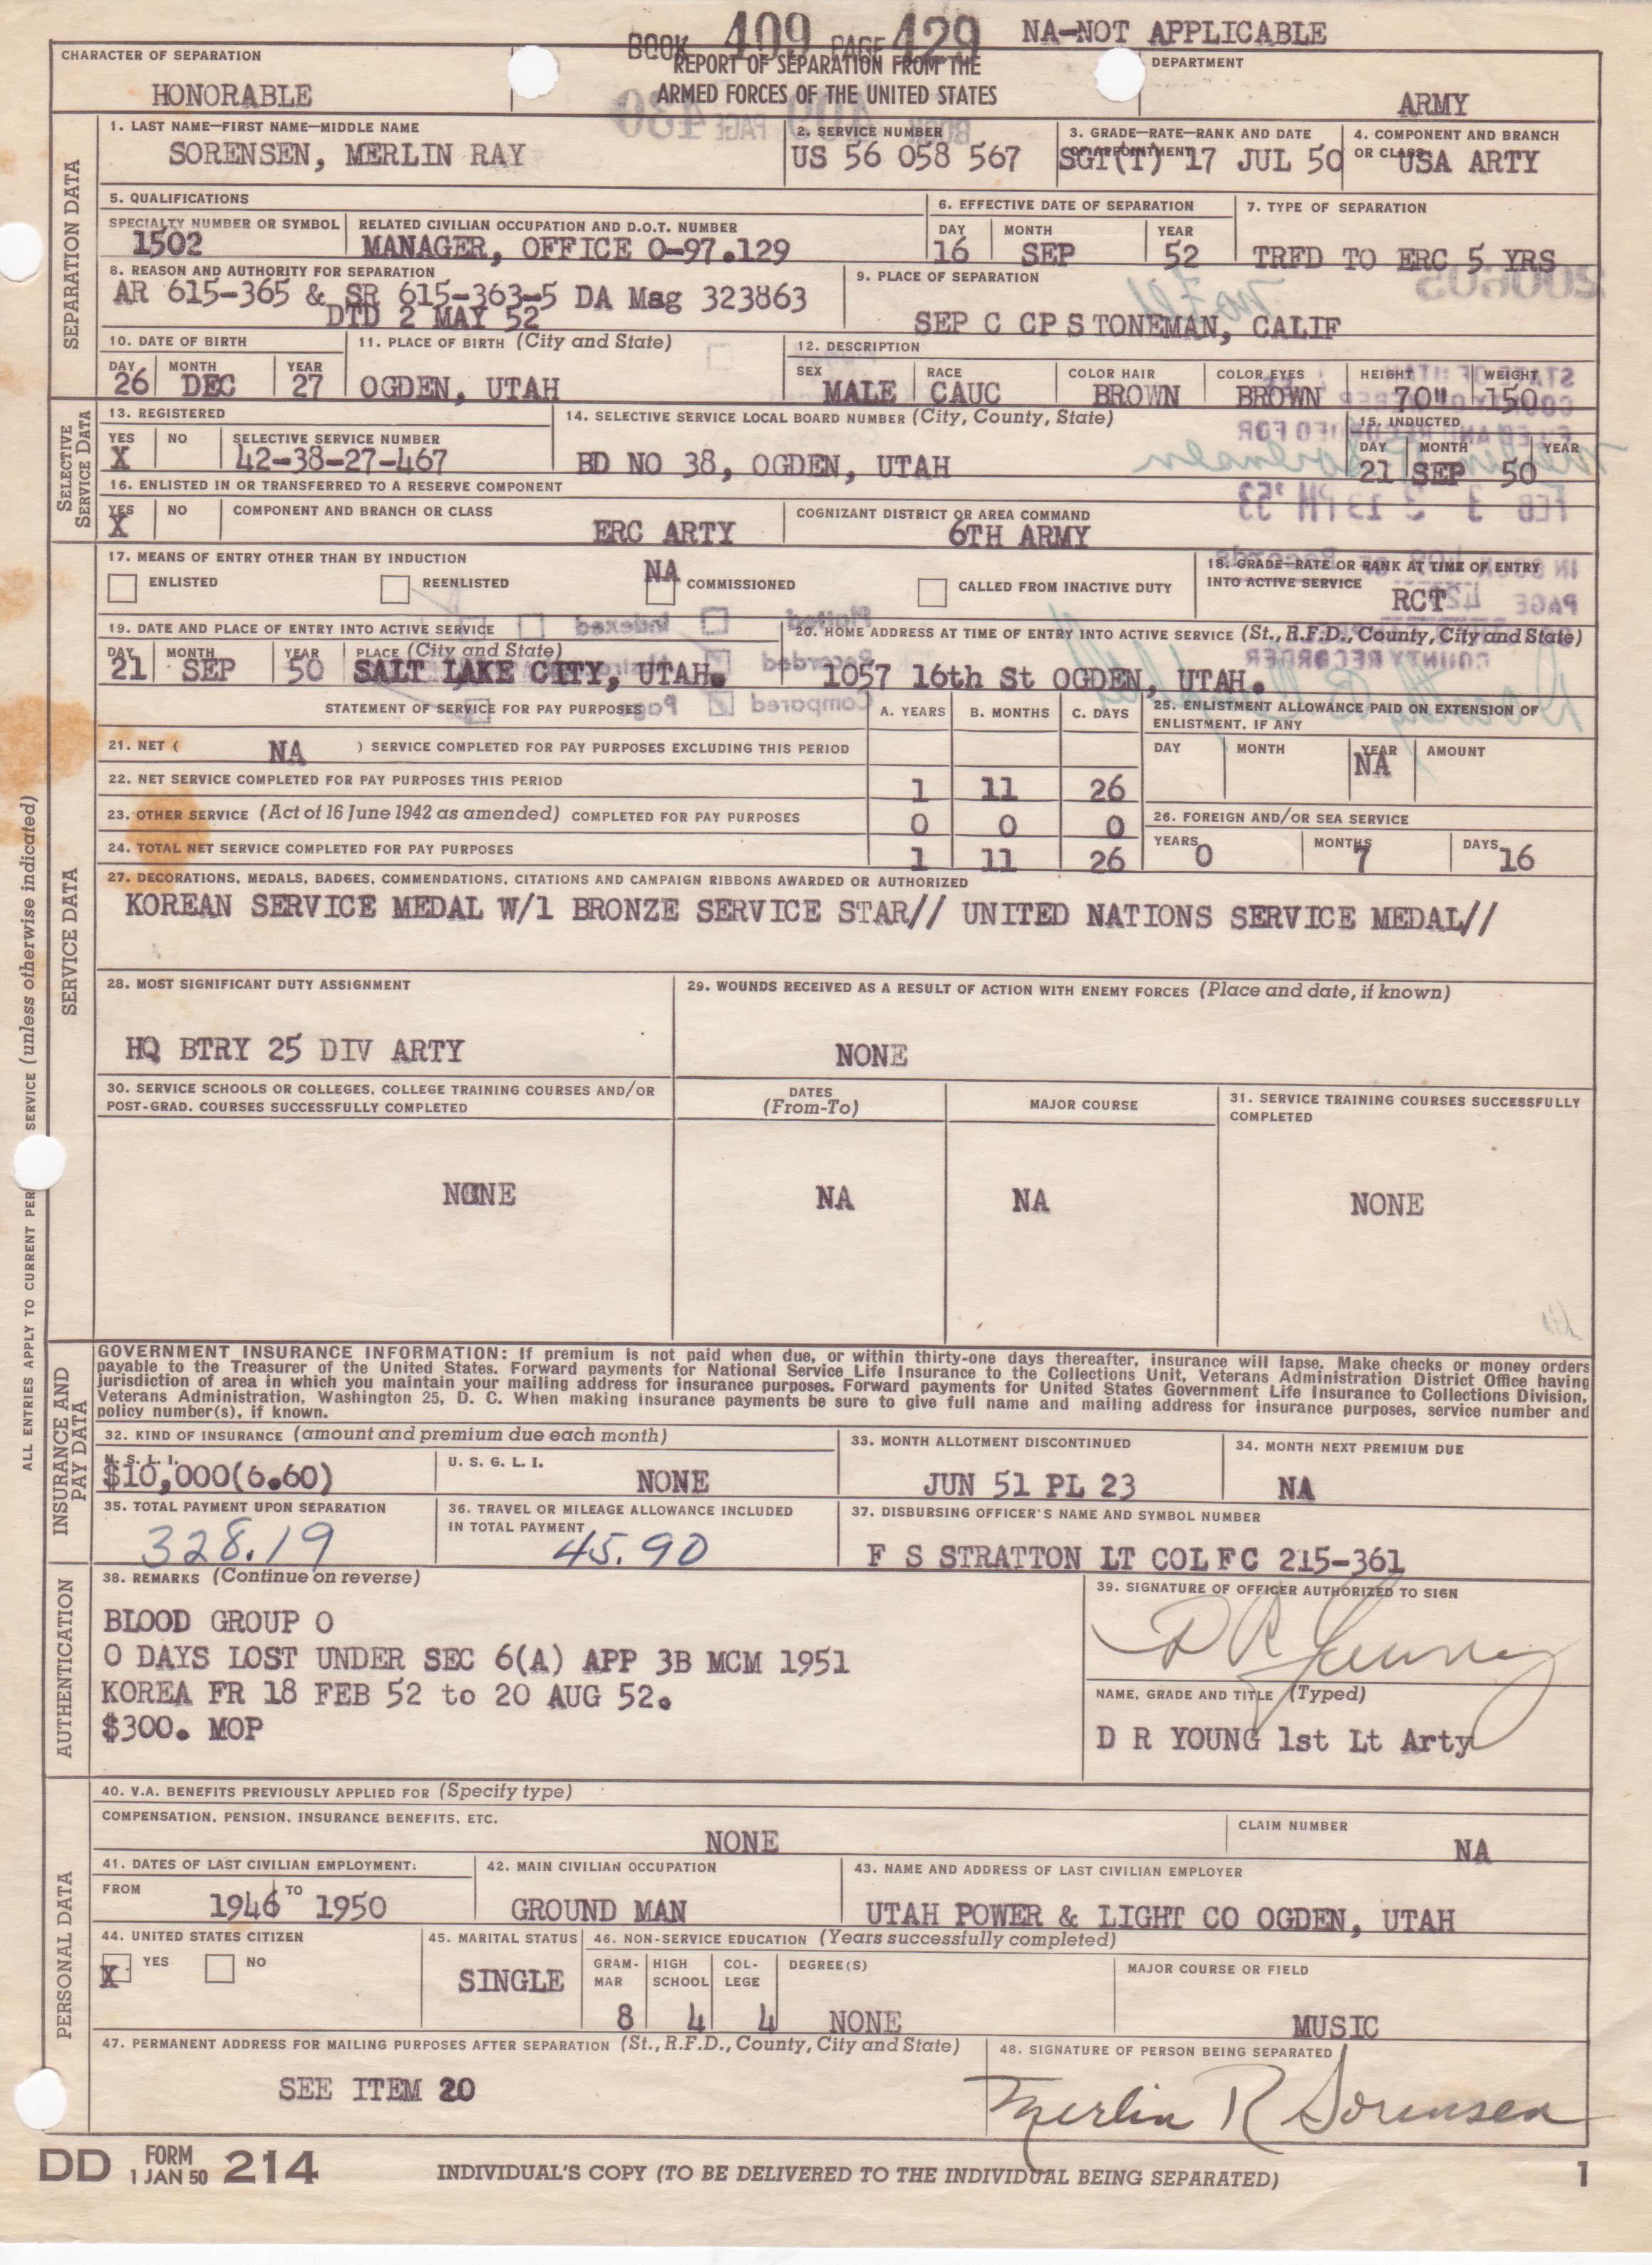 BOOK 409 PAGE 429 NA-NOT APPLICABLE
CHARACTER OF SEPARATION
HONORABLE
REPORT OF SEPARATION FROM THE
ARMED FORCES OF THE UNITED STATES
DEPARTMENT
ARMY
SEPARATION DATA
1. LAST NAME—FIRST NAME—MIDDLE NAME
SORENSEN, MERLIN RAY
2. SERVICE NUMBER
US 56 058 567
3. GRADE—RATE—RANK AND DATE
OF APPOINTMENT
SGT(T) 17 JUL 50
4. COMPONENT AND BRANCH
OR CLASS
USA ARTY
5. QUALIFICATIONS
SPECIALTY NUMBER OR SYMBOL
1502
RELATED CIVILIAN OCCUPATION AND D.O.T. NUMBER
MANAGER, OFFICE 0-97.129
6. EFFECTIVE DATE OF SEPARATION
DAY MONTH YEAR
16 SEP 52
7. TYPE OF SEPARATION
TRFD TO ERC 5 YRS
8. REASON AND AUTHORITY FOR SEPARATION
AR 615-365 & SR 615-363-5 DA Msg 323863
DTD 2 MAY 52
9. PLACE OF SEPARATION
SEP C CP STONEMAN, CALIF
10. DATE OF BIRTH
DAY MONTH YEAR
26 DEC 27
11. PLACE OF BIRTH (City and State)
OGDEN, UTAH
12. DESCRIPTION
SEX RACE COLOR HAIR COLOR EYES HEIGHT WEIGHT
MALE CAUC BROWN BROWN 70" 150
SELECTIVE
SERVICE DATA
13. REGISTERED
YES NO SELECTIVE SERVICE NUMBER
X 42-38-27-467
14. SELECTIVE SERVICE LOCAL BOARD NUMBER (City, County, State)
BD NO 38, OGDEN, UTAH
15. INDUCTED
DAY MONTH YEAR
21 SEP 50
16. ENLISTED IN OR TRANSFERRED TO A RESERVE COMPONENT
YES NO COMPONENT AND BRANCH OR CLASS
X ERC ARTY
COGNIZANT DISTRICT OR AREA COMMAND
6TH ARMY
SERVICE DATA
17. MEANS OF ENTRY OTHER THAN BY INDUCTION
NA
ENLISTED REENLISTED COMMISSIONED CALLED FROM INACTIVE DUTY
18. GRADE—RATE OR RANK AT TIME OF ENTRY
INTO ACTIVE SERVICE
RCT
19. DATE AND PLACE OF ENTRY INTO ACTIVE SERVICE
DAY MONTH YEAR PLACE (City and State)
21 SEP 50 SALT LAKE CITY, UTAH.
20. HOME ADDRESS AT TIME OF ENTRY INTO ACTIVE SERVICE (St., R.F.D., County, City and State)
1057 16th St OGDEN, UTAH.
STATEMENT OF SERVICE FOR PAY PURPOSES
A. YEARS B. MONTHS C. DAYS
21. NET ( NA ) SERVICE COMPLETED FOR PAY PURPOSES EXCLUDING THIS PERIOD
22. NET SERVICE COMPLETED FOR PAY PURPOSES THIS PERIOD
1 11 26
23. OTHER SERVICE (Act of 16 June 1942 as amended) COMPLETED FOR PAY PURPOSES
0 0 0
24. TOTAL NET SERVICE COMPLETED FOR PAY PURPOSES
1 11 26
25. ENLISTMENT ALLOWANCE PAID ON EXTENSION OF
ENLISTMENT, IF ANY
DAY MONTH YEAR AMOUNT
NA
26. FOREIGN AND/OR SEA SERVICE
YEARS MONTHS DAYS
0 7 16
27. DECORATIONS, MEDALS, BADGES, COMMENDATIONS, CITATIONS AND CAMPAIGN RIBBONS AWARDED OR AUTHORIZED
KOREAN SERVICE MEDAL W/1 BRONZE SERVICE STAR// UNITED NATIONS SERVICE MEDAL//
28. MOST SIGNIFICANT DUTY ASSIGNMENT
HQ BTRY 25 DIV ARTY
29. WOUNDS RECEIVED AS A RESULT OF ACTION WITH ENEMY FORCES (Place and date, if known)
NONE
30. SERVICE SCHOOLS OR COLLEGES, COLLEGE TRAINING COURSES AND/OR
POST-GRAD. COURSES SUCCESSFULLY COMPLETED
NONE
DATES
(From-To)
NA
MAJOR COURSE
NA
31. SERVICE TRAINING COURSES SUCCESSFULLY
COMPLETED
NONE
ALL ENTRIES APPLY TO CURRENT PER SERVICE (unless otherwise indicated)
INSURANCE AND
PAY DATA
GOVERNMENT INSURANCE INFORMATION: If premium is not paid when due, or within thirty-one days thereafter, insurance will lapse. Make checks or money orders
payable to the Treasurer of the United States. Forward payments for National Service Life Insurance to the Collections Unit, Veterans Administration District Office having
jurisdiction of area in which you maintain your mailing address for insurance purposes. Forward payments for United States Government Life Insurance to Collections Division,
Veterans Administration, Washington 25, D. C. When making insurance payments be sure to give full name and mailing address for insurance purposes, service number and
policy number(s), if known.
32. KIND OF INSURANCE (amount and premium due each month)
N. S. L. I.
$10,000(6.60)
U. S. G. L. I.
NONE
33. MONTH ALLOTMENT DISCONTINUED
JUN 51 PL 23
34. MONTH NEXT PREMIUM DUE
NA
35. TOTAL PAYMENT UPON SEPARATION
328.19
36. TRAVEL OR MILEAGE ALLOWANCE INCLUDED
IN TOTAL PAYMENT
45.90
37. DISBURSING OFFICER'S NAME AND SYMBOL NUMBER
F S STRATTON LT COL FC 215-361
AUTHENTICATION
38. REMARKS (Continue on reverse)
BLOOD GROUP O
0 DAYS LOST UNDER SEC 6(A) APP 3B MCM 1951
KOREA FR 18 FEB 52 to 20 AUG 52.
$300. MOP
39. SIGNATURE OF OFFICER AUTHORIZED TO SIGN
D R Young
NAME, GRADE AND TITLE (Typed)
D R YOUNG 1st Lt Arty
PERSONAL DATA
40. V.A. BENEFITS PREVIOUSLY APPLIED FOR (Specify type)
COMPENSATION, PENSION, INSURANCE BENEFITS, ETC.
NONE
CLAIM NUMBER
NA
41. DATES OF LAST CIVILIAN EMPLOYMENT:
FROM 1946 TO 1950
42. MAIN CIVILIAN OCCUPATION
GROUND MAN
43. NAME AND ADDRESS OF LAST CIVILIAN EMPLOYER
UTAH POWER & LIGHT CO OGDEN, UTAH
44. UNITED STATES CITIZEN
X YES NO
45. MARITAL STATUS
SINGLE
46. NON-SERVICE EDUCATION (Years successfully completed)
GRAM-
MAR
8
HIGH
SCHOOL
4
COL-
LEGE
4
DEGREE(S)
NONE
MAJOR COURSE OR FIELD
MUSIC
47. PERMANENT ADDRESS FOR MAILING PURPOSES AFTER SEPARATION (St., R.F.D., County, City and State)
SEE ITEM 20
48. SIGNATURE OF PERSON BEING SEPARATED
Merlin R Sorensen
DD FORM 1 JAN 50 214
INDIVIDUAL'S COPY (TO BE DELIVERED TO THE INDIVIDUAL BEING SEPARATED)
1